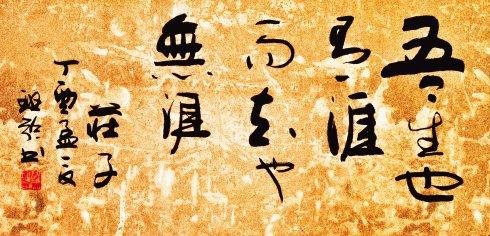 吾生也
有涯
而知也
無涯
莊子
丁酉孟夏
书